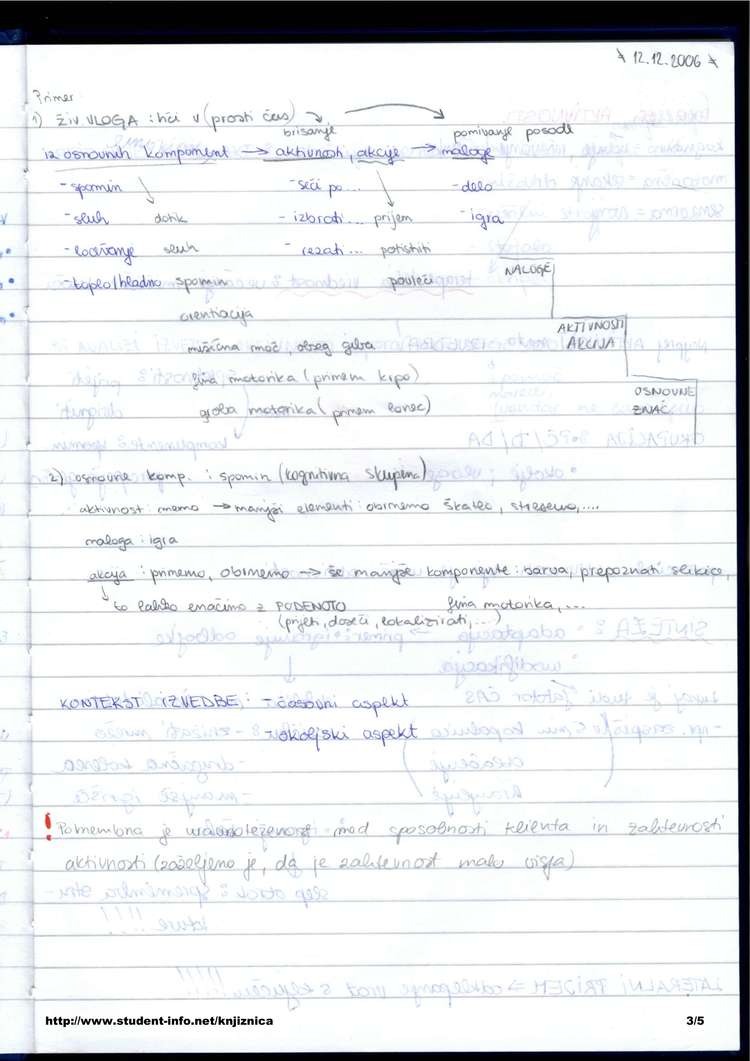 * 12.12.2006 *
Primer
1) ŽIV VLOGA : hči v (prosti čas)
brisanje pomivanje posode
iz osnovnih komponent → aktivnosti, akcije → naloge
- spomin - seči po... - delo
- sluh dotik - izbrati... prijem - igra
- ločevanje sluh - rezati... potisniti
- toplo/hladno spomin povleči NALOGE
orientacija
AKTIVNOSTI
mišična moč, obseg giba AKCIJA
fina motorika (primem krpo)
OSNOVNE
groba motorika (primem lonec) ZNAČ.
2) osnovne komp. : spomin (kognitivna skupina)
aktivnost : memo → manjši elementi : obrnemo škatlo, stresemo,....
naloga : igra
akcija : primemo, obrnemo → še manjše komponente : barva, prepoznati sličice,
to lahko enačimo z PODENOTO fina motorika,...
(prijeti, doseči, lokalizirati,...)
KONTEKST IZVEDBE : - časovni aspekt
- okoljski aspekt
! Pomembna je uravnoteženost med sposobnosti klienta in zahtevnosti
aktivnosti (zaželjeno je, da je zahtevnost malo višja)
http://www.student-info.net/knjiznica 3/5